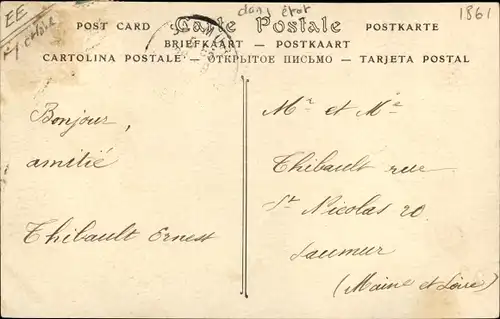 EE
dans état
1861
POST CARD Carte Postale POSTKARTE
BRIEFKAART — POSTKAART
CARTOLINA POSTALE — ОТКРЫТОЕ ПИСЬМО — TARJETA POSTAL
Bonjour,
amitié
Thibault Ernest
Mr et Me
Thibault rue
St Nicolas 20
Saumur
(Maine et Loire)